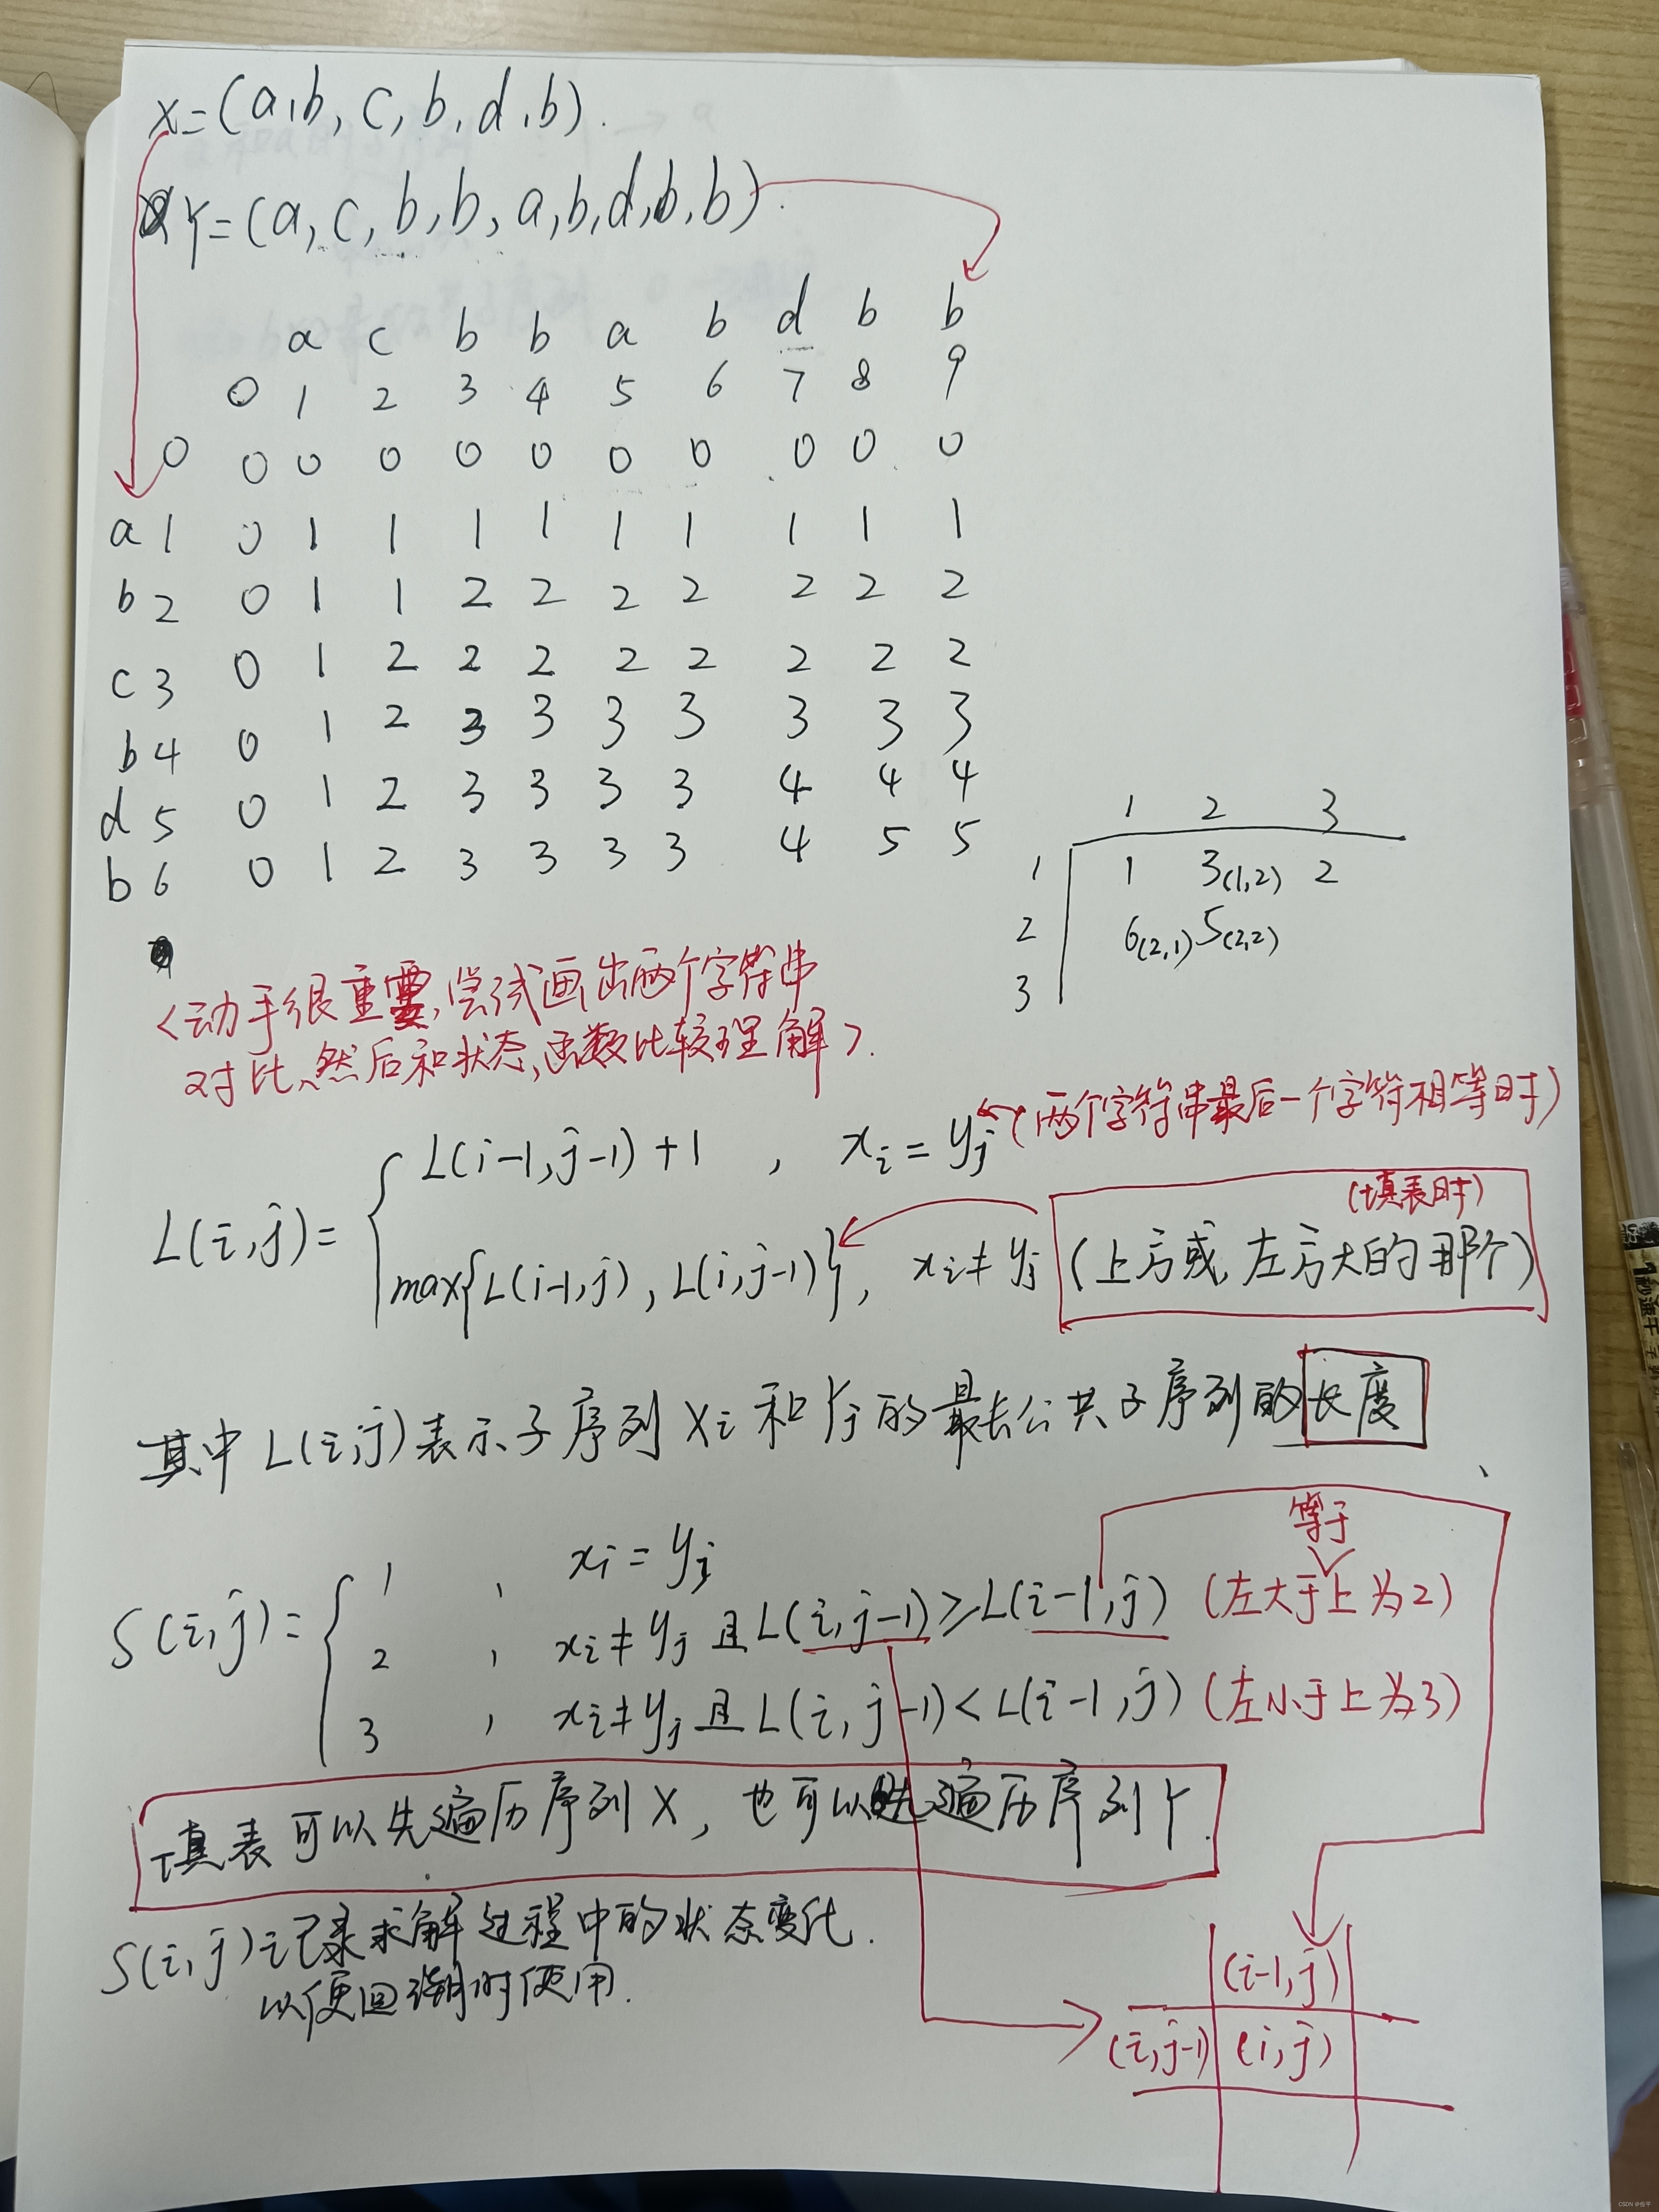 X=(a,b,c,b,d,b).
Y=(a,c,b,b,a,b,d,b,b).
a c b b a b d b b
0 1 2 3 4 5 6 7 8 9
0 0 0 0 0 0 0 0 0 0 0
a 1 0 1 1 1 1 1 1 1 1 1
b 2 0 1 1 2 2 2 2 2 2 2
c 3 0 1 2 2 2 2 2 2 2 2
b 4 0 1 2 3 3 3 3 3 3 3
d 5 0 1 2 3 3 3 3 4 4 4
b 6 0 1 2 3 3 3 3 4 5 5
1 2 3
1 1 3(1,2) 2
2 6(2,1) 5(2,2)
3
<动手很重要,尝试画出两个字符串
对比、然后和状态,函数比较理解>.
L(i,j)={ L(i-1,j-1)+1 , xi=yj (两个字符串最后一个字符相等时)
max{L(i-1,j), L(i,j-1)}, xi≠yj (上方或左方大的那个)
(填表时)
其中L(i,j)表示子序列Xi和Yj的最长公共子序列的长度
S(i,j)={ 1 , xi=yj
等于
2 , xi≠yj且L(i,j-1)≥L(i-1,j) (左大于上为2)
3 , xi≠yj且L(i,j-1)<L(i-1,j) (左小于上为3)
填表可以先遍历序列X,也可以先遍历序列Y.
S(i,j)记录求解过程中的状态变化.
以便回溯时使用.
(i-1,j)
(i,j-1) (i,j)